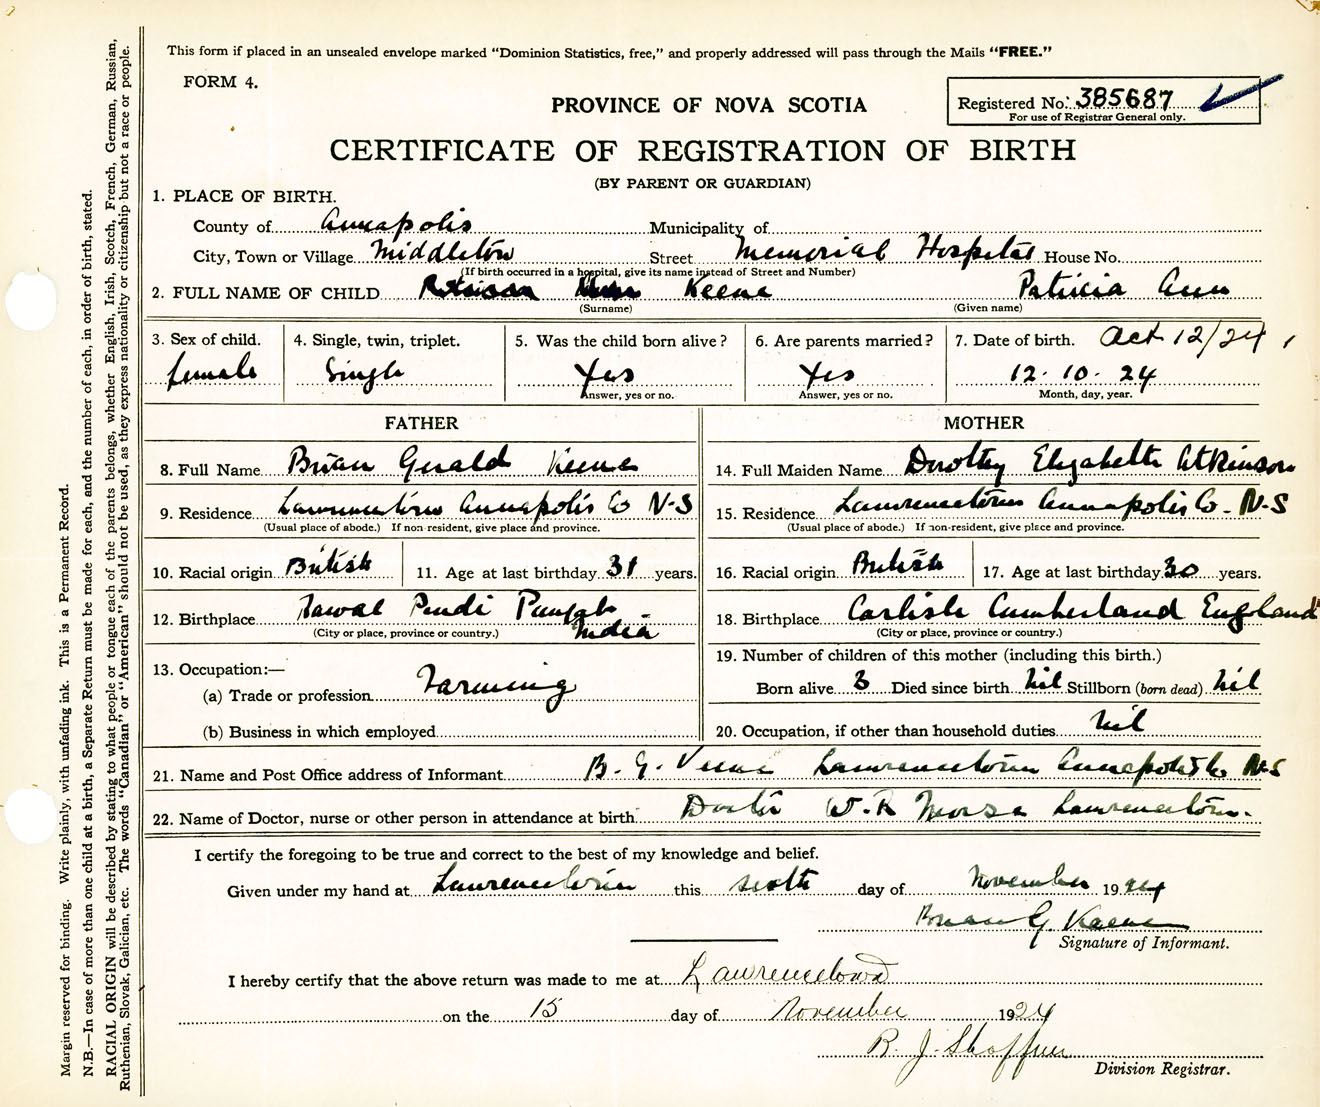 This form if placed in an unsealed envelope marked “Dominion Statistics, free,” and properly addressed will pass through the Mails “FREE.”
FORM 4.
PROVINCE OF NOVA SCOTIA
Registered No. 385687
For use of Registrar General only.
CERTIFICATE OF REGISTRATION OF BIRTH
(BY PARENT OR GUARDIAN)
1. PLACE OF BIRTH.
County of Annapolis Municipality of
City, Town or Village Middleton Street Memorial Hospital House No.
(If birth occurred in a hospital, give its name instead of Street and Number)
2. FULL NAME OF CHILD Keene Patricia Ann
(Surname) (Given name)
3. Sex of child. 4. Single, twin, triplet. 5. Was the child born alive? 6. Are parents married? 7. Date of birth. Oct 12/24
female Single Yes Yes 12. 10. 24
Answer, yes or no. Answer, yes or no. Month, day, year.
FATHER
8. Full Name Brian Gerald Keene
9. Residence Lawrencetown Annapolis Co N-S
(Usual place of abode.) If non resident, give place and province.
10. Racial origin British 11. Age at last birthday 31 years.
12. Birthplace Rawal Pindi Punjab India
(City or place, province or country.)
13. Occupation:—
(a) Trade or profession Farming
(b) Business in which employed
MOTHER
14. Full Maiden Name Dorothy Elizabeth Atkinson
15. Residence Lawrencetown Annapolis Co. N-S
(Usual place of abode.) If non-resident, give place and province.
16. Racial origin British 17. Age at last birthday 30 years.
18. Birthplace Carlisle Cumberland England
(City or place, province or country.)
19. Number of children of this mother (including this birth.)
Born alive 3 Died since birth nil Stillborn (born dead) nil
20. Occupation, if other than household duties nil
21. Name and Post Office address of Informant B. G. Keene Lawrencetown Annapolis Co N-S
22. Name of Doctor, nurse or other person in attendance at birth Doctor W. R Morse Lawrencetown.
I certify the foregoing to be true and correct to the best of my knowledge and belief.
Given under my hand at Lawrencetown this sixth day of November 1924
Brian G. Keene
Signature of Informant.
I hereby certify that the above return was made to me at Lawrencetown
on the 15 day of November 1924
R. J. Shaffner
Division Registrar.
Margin reserved for binding. Write plainly, with unfading ink. This is a Permanent Record.
N.B.—In case of more than one child at a birth, a Separate Return must be made for each, and the number of each, in order of birth, stated.
RACIAL ORIGIN will be described by stating to what people or tongue each of the parents belongs, whether English, Irish, Scotch, French, German, Russian,
Ruthenian, Slovak, Galician, etc. The words “Canadian” or “American” should not be used, as they express nationality or citizenship but not a race or people.